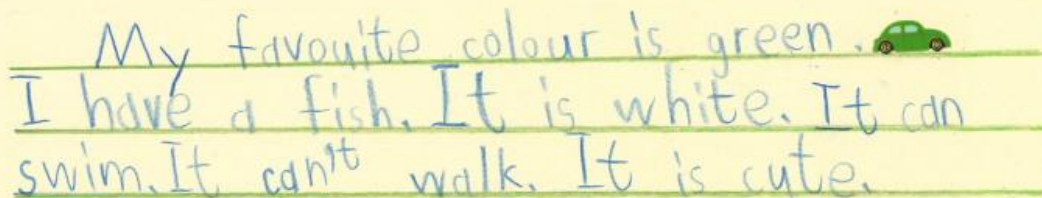 My favouite colour is green.
I have a fish. It is white. It can
swim. It can't walk. It is cute.